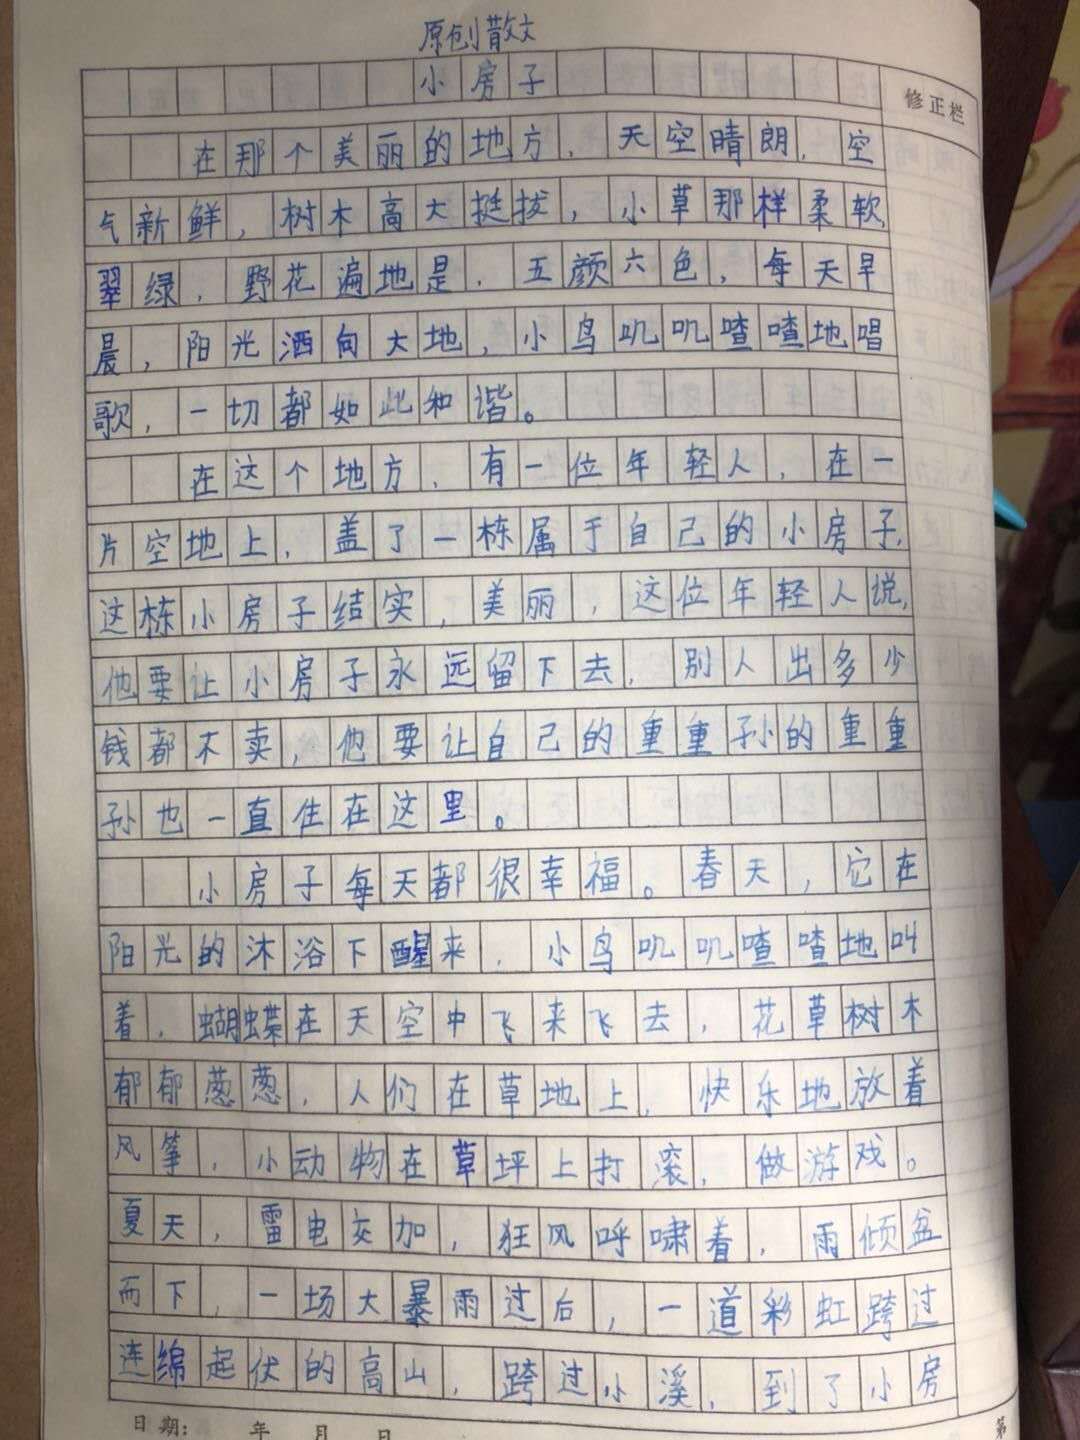 原创散文
小房子
修正栏
在那个美丽的地方，天空晴朗，空
气新鲜，树木高大挺拔，小草那样柔软，
翠绿，野花遍地是，五颜六色，每天早
晨，阳光洒向大地，小鸟叽叽喳喳地唱
歌，一切都如此和谐。
在这个地方，有一位年轻人，在一
片空地上，盖了一栋属于自己的小房子，
这栋小房子结实，美丽，这位年轻人说，
他要让小房子永远留下去，别人出多少
钱都不卖，他要让自己的重重孙的重重
孙也一直住在这里。
小房子每天都很幸福。春天，它在
阳光的沐浴下醒来，小鸟叽叽喳喳地叫
着，蝴蝶在天空中飞来飞去，花草树木
郁郁葱葱，人们在草地上，快乐地放着
风筝，小动物在草坪上打滚，做游戏。
夏天，雷电交加，狂风呼啸着，雨倾盆
而下，一场大暴雨过后，一道彩虹跨过
连绵起伏的高山，跨过小溪，到了小房
日期： 年 月 日 第